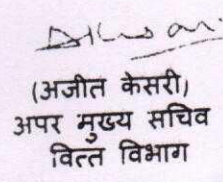 (अजीत केसरी)
अपर मुख्य सचिव
वित्त विभाग